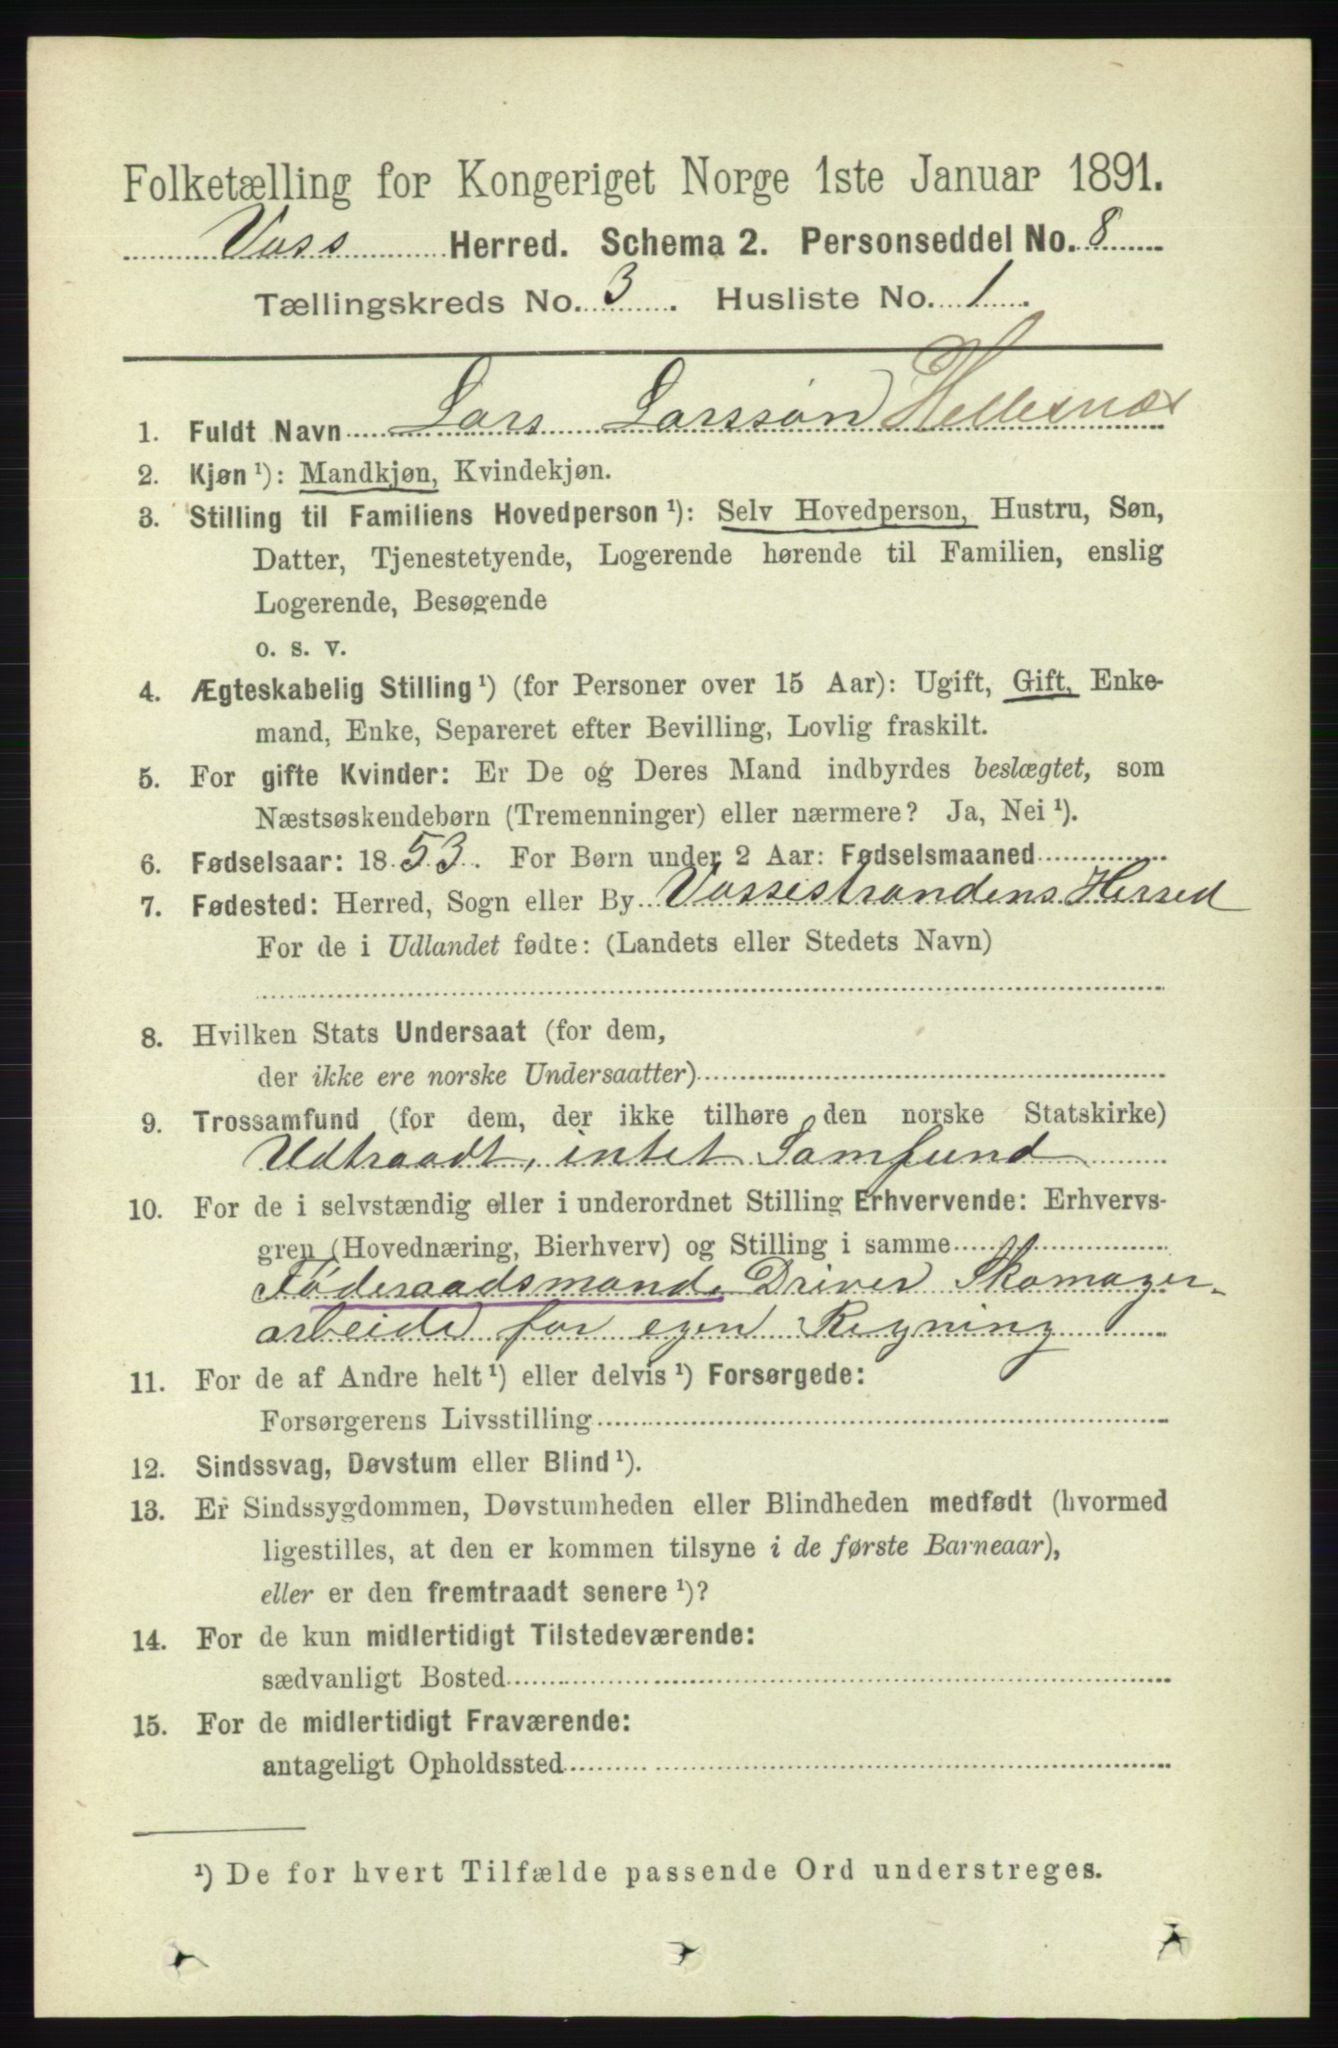 Folketælling for Kongeriget Norge 1ste Januar 1891.
Voss Herred. Schema 2. Personseddel No. 8
Tællingskreds No. 3. Husliste No. 1.
1. Fuldt Navn Lars Larssøn Hellesnæs
2. Kjøn ¹): Mandkjøn, Kvindekjøn.
3. Stilling til Familiens Hovedperson ¹): Selv Hovedperson, Hustru, Søn,
Datter, Tjenestetyende, Logerende hørende til Familien, enslig
Logerende, Besøgende
o. s. v.
4. Ægteskabelig Stilling ¹) (for Personer over 15 Aar): Ugift, Gift, Enke-
mand, Enke, Separeret efter Bevilling, Lovlig fraskilt.
5. For gifte Kvinder: Er De og Deres Mand indbyrdes beslægtet, som
Næstsøskendebørn (Tremenninger) eller nærmere? Ja, Nei ¹).
6. Fødselsaar: 1853. For Børn under 2 Aar: Fødselsmaaned
7. Fødested: Herred, Sogn eller By Vossestrandens Herred
For de i Udlandet fødte: (Landets eller Stedets Navn)
8. Hvilken Stats Undersaat (for dem,
der ikke ere norske Undersaatter)
9. Trossamfund (for dem, der ikke tilhøre den norske Statskirke)
Udtraadt, intet Samfund
10. For de i selvstændig eller i underordnet Stilling Erhvervende: Erhvervs-
gren (Hovednæring, Bierhverv) og Stilling i samme
Føderaadsmand. Driver Skomager-
arbeide for egen Regning
11. For de af Andre helt ¹) eller delvis ¹) Forsørgede:
Forsørgerens Livsstilling
12. Sindssvag, Døvstum eller Blind ¹).
13. Er Sindssygdommen, Døvstumheden eller Blindheden medfødt (hvormed
ligestilles, at den er kommen tilsyne i de første Barneaar),
eller er den fremtraadt senere ¹)?
14. For de kun midlertidigt Tilstedeværende:
sædvanligt Bosted
15. For de midlertidigt Fraværende:
antageligt Opholdssted
¹) De for hvert Tilfælde passende Ord understreges.